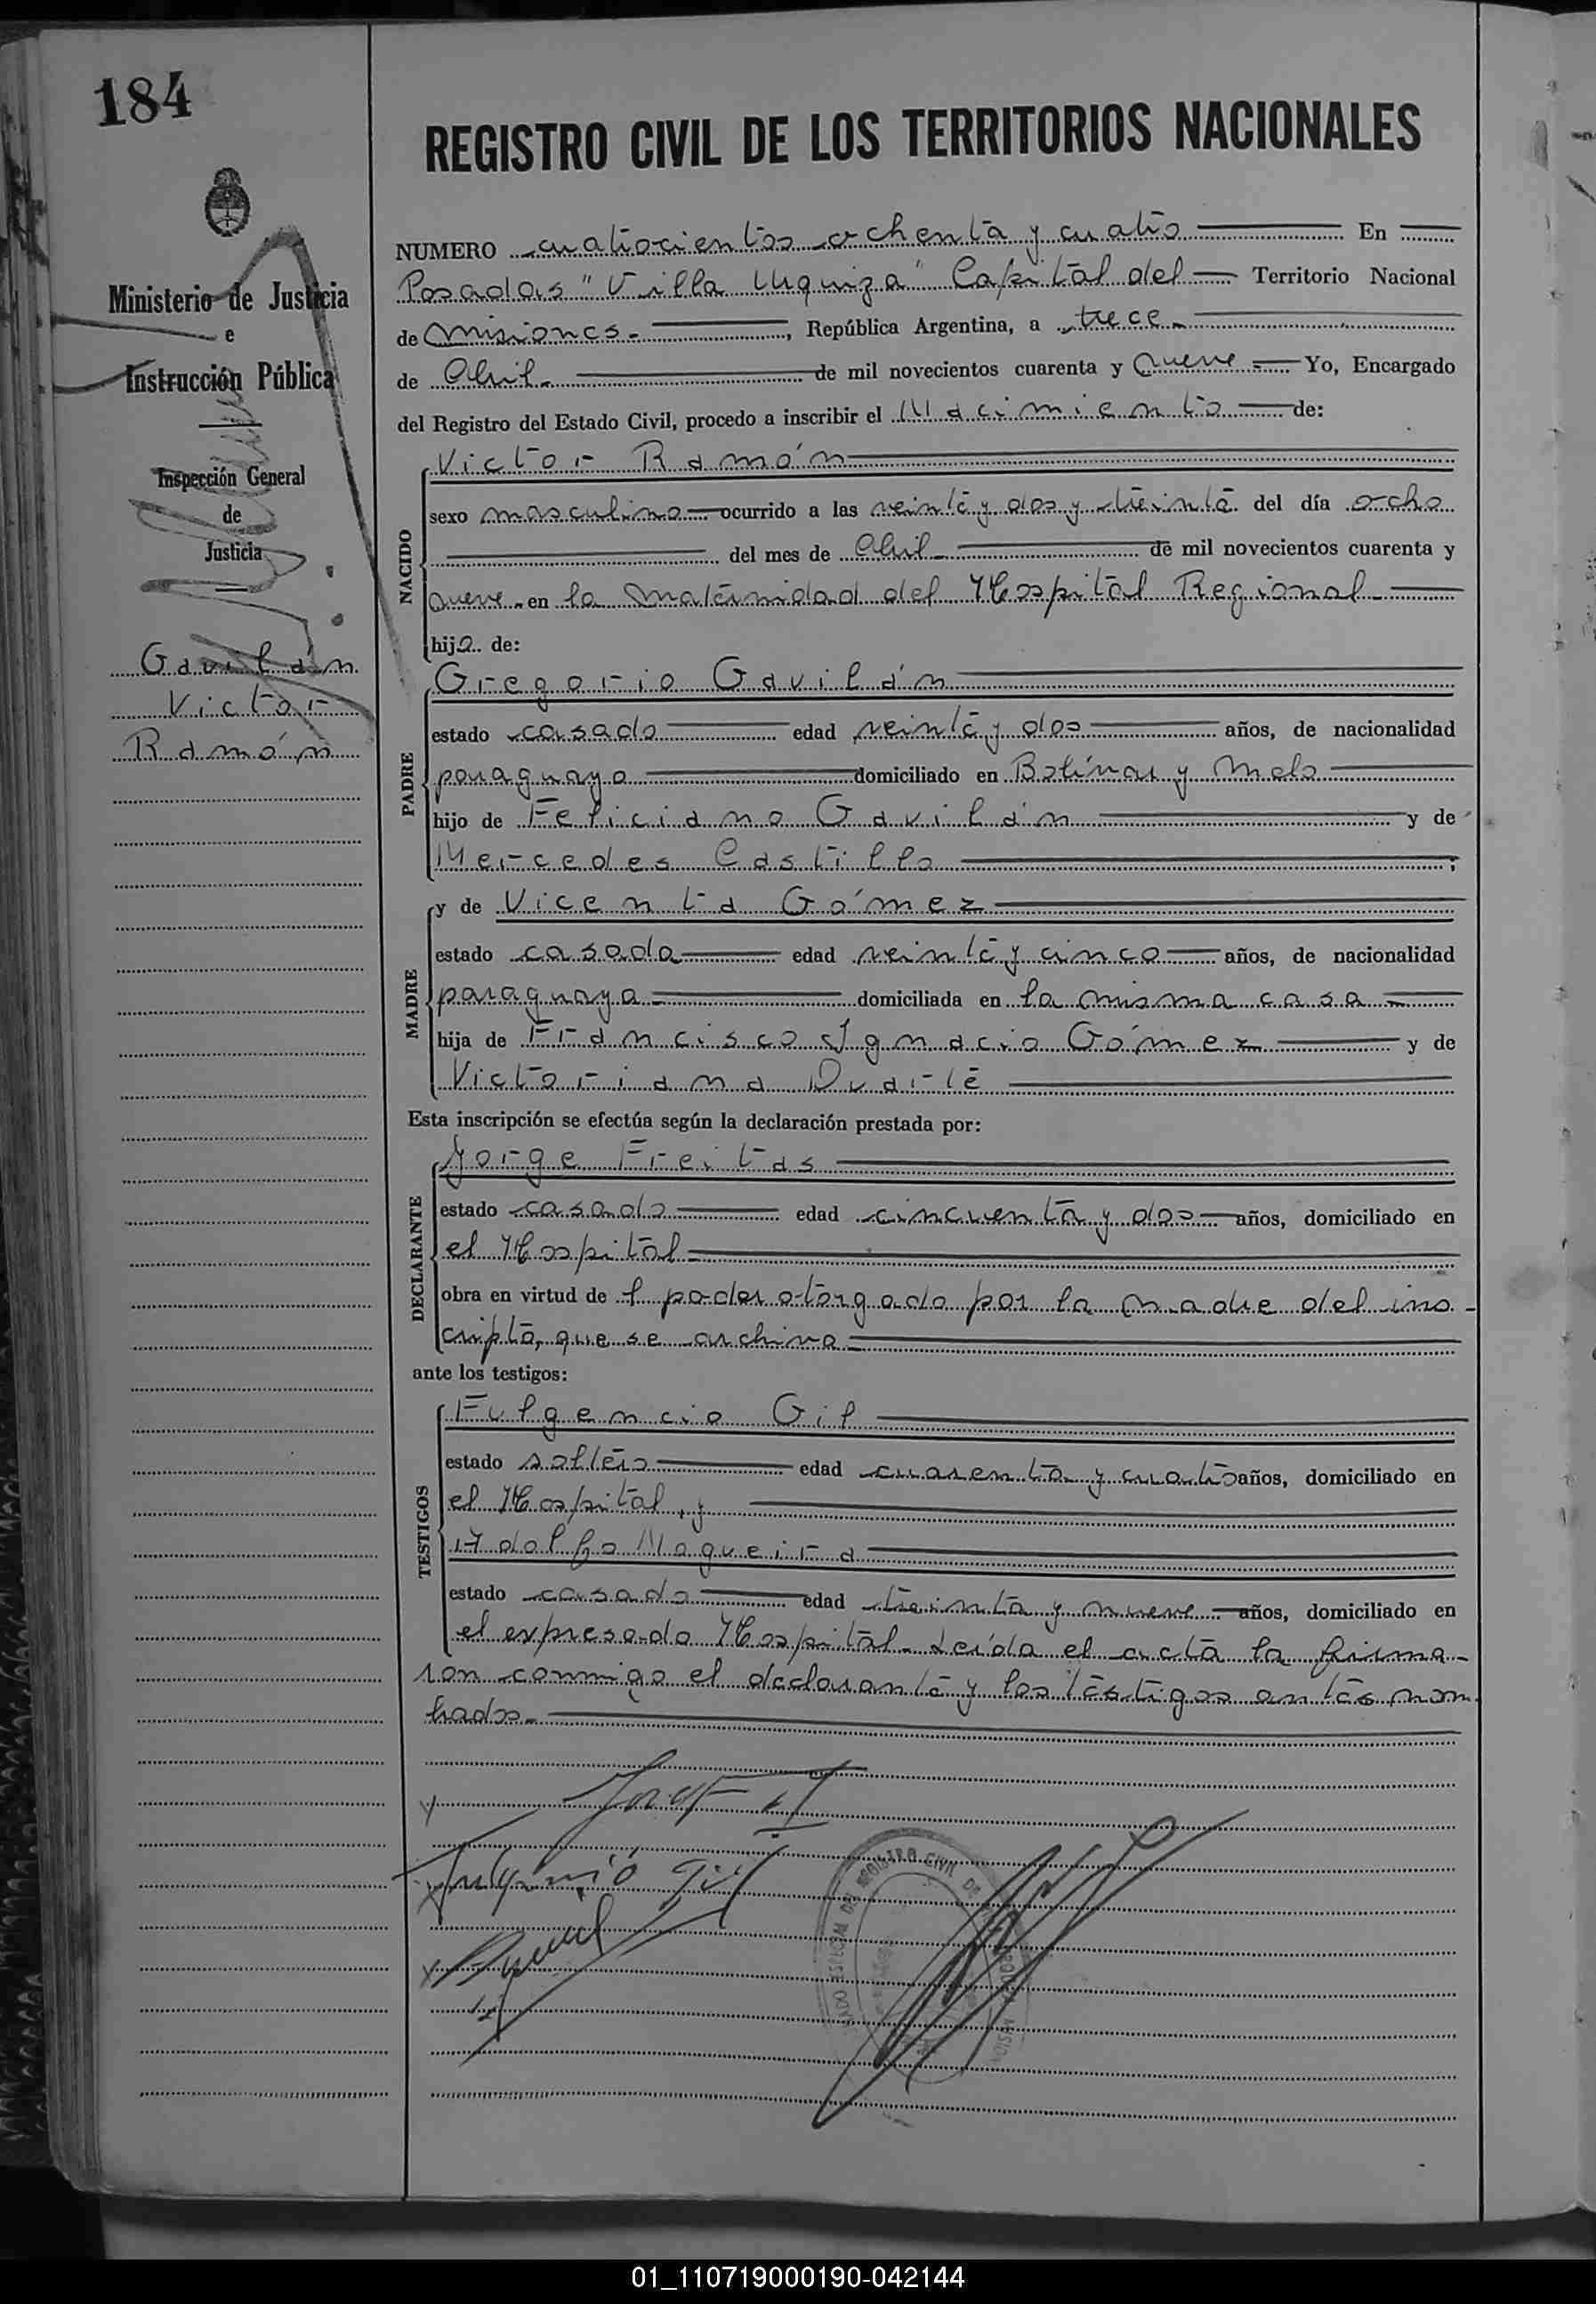 184
REGISTRO CIVIL DE LOS TERRITORIOS NACIONALES
Ministerio de Justicia
e
Instrucción Pública
Inspección General
de
Justicia
Gavilán
Victor
Ramón
NUMERO cuatrocientos ochenta y cuatro En
Posadas "Villa Urquiza" Capital del Territorio Nacional
de Misiones.-, República Argentina, a trece.-
de Abril.- de mil novecientos cuarenta y nueve.- Yo, Encargado
del Registro del Estado Civil, procedo a inscribir el Nacimiento de:
NACIDO
Victor Ramón
sexo masculino ocurrido a las veinte y dos y treinta del día ocho
del mes de Abril.- de mil novecientos cuarenta y
nueve.- en la maternidad del Hospital Regional.-
hijo de:
PADRE
Gregorio Gavilán
estado casado edad veinte y dos años, de nacionalidad
paraguayo domiciliado en Bolívar y Melo
hijo de Feliciano Gavilán y de
Mercedes Castillo ;
MADRE
y de Vicenta Gómez
estado casada edad veinte y cinco años, de nacionalidad
paraguaya.- domiciliada en la misma casa.-
hija de Francisco Ignacio Gómez y de
Victoriana Duarte
Esta inscripción se efectúa según la declaración prestada por:
DECLARANTE
Jorge Freitas
estado casado edad cincuenta y dos años, domiciliado en
el Hospital.-
obra en virtud de l poder otorgado por la madre del ins-
cripto, que se archiva.-
ante los testigos:
TESTIGOS
Fulgencio Gil
estado soltero edad cuarenta y cuatro años, domiciliado en
el Hospital, y
Adolfo Maqueira
estado casado edad treinta y nueve años, domiciliado en
el expresado Hospital.- Leída el acta la firma-
ron conmigo el declarante y los testigos antes nom
brados.-
Fulgencio Gil
REGISTRO CIVIL DE
01_110719000190-042144